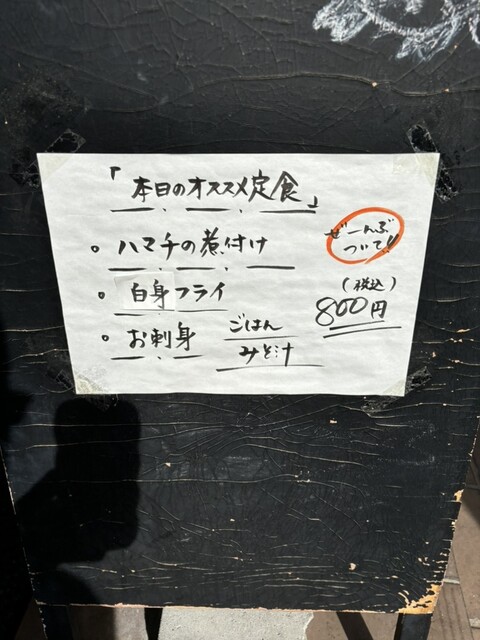 「本日のオススメ定食」
。ハマチの煮付け
。白身フライ
。お刺身
ごはん
みそ汁
ぜーんぶ
ついて!!
(税込)
800円